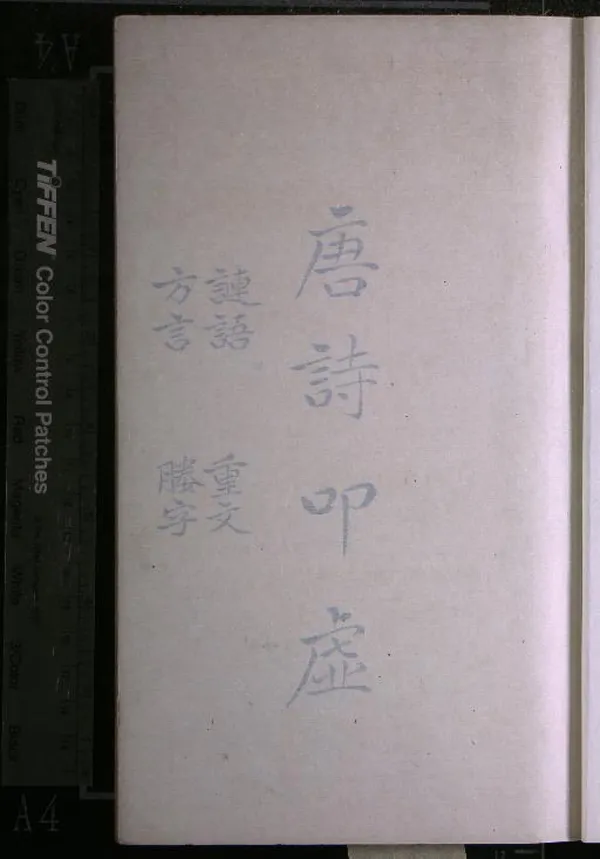 唐詩叩虛
謰語 重文
方言 賸字
TIFFEN Color Control Patches
A4
A4